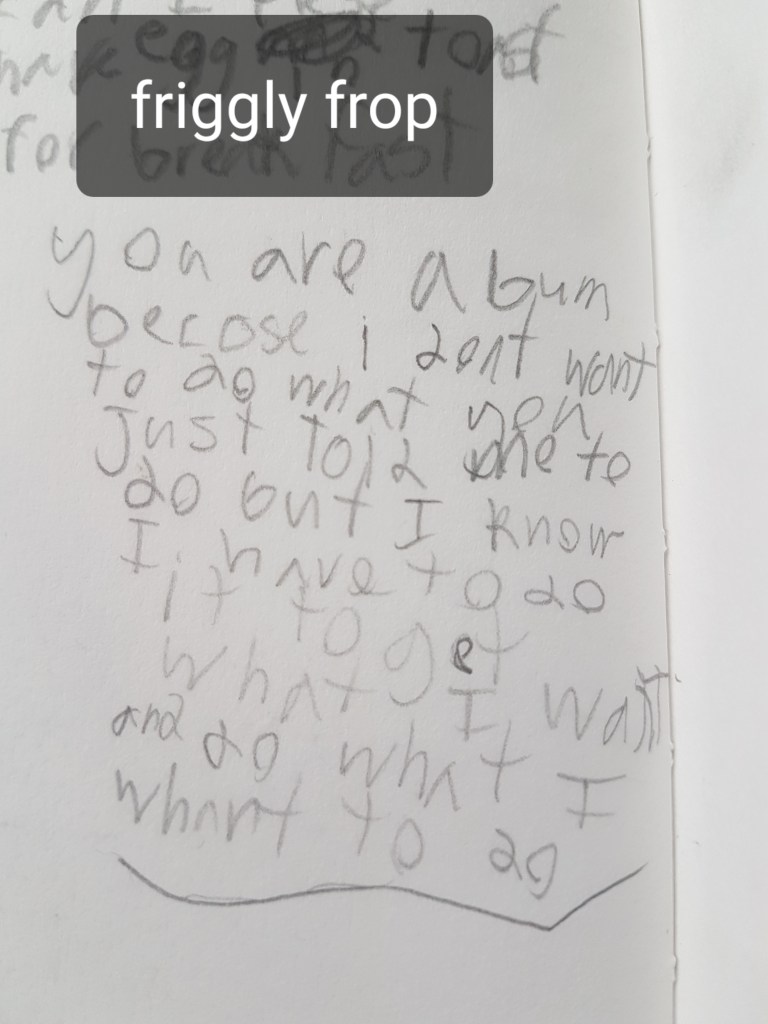 have egg to
friggly frop
for break fast
you are a bum
becose i dont want
to do what you
Just told me to
do but I know
I have to do
it to get
what I want
and do what I
whant to do